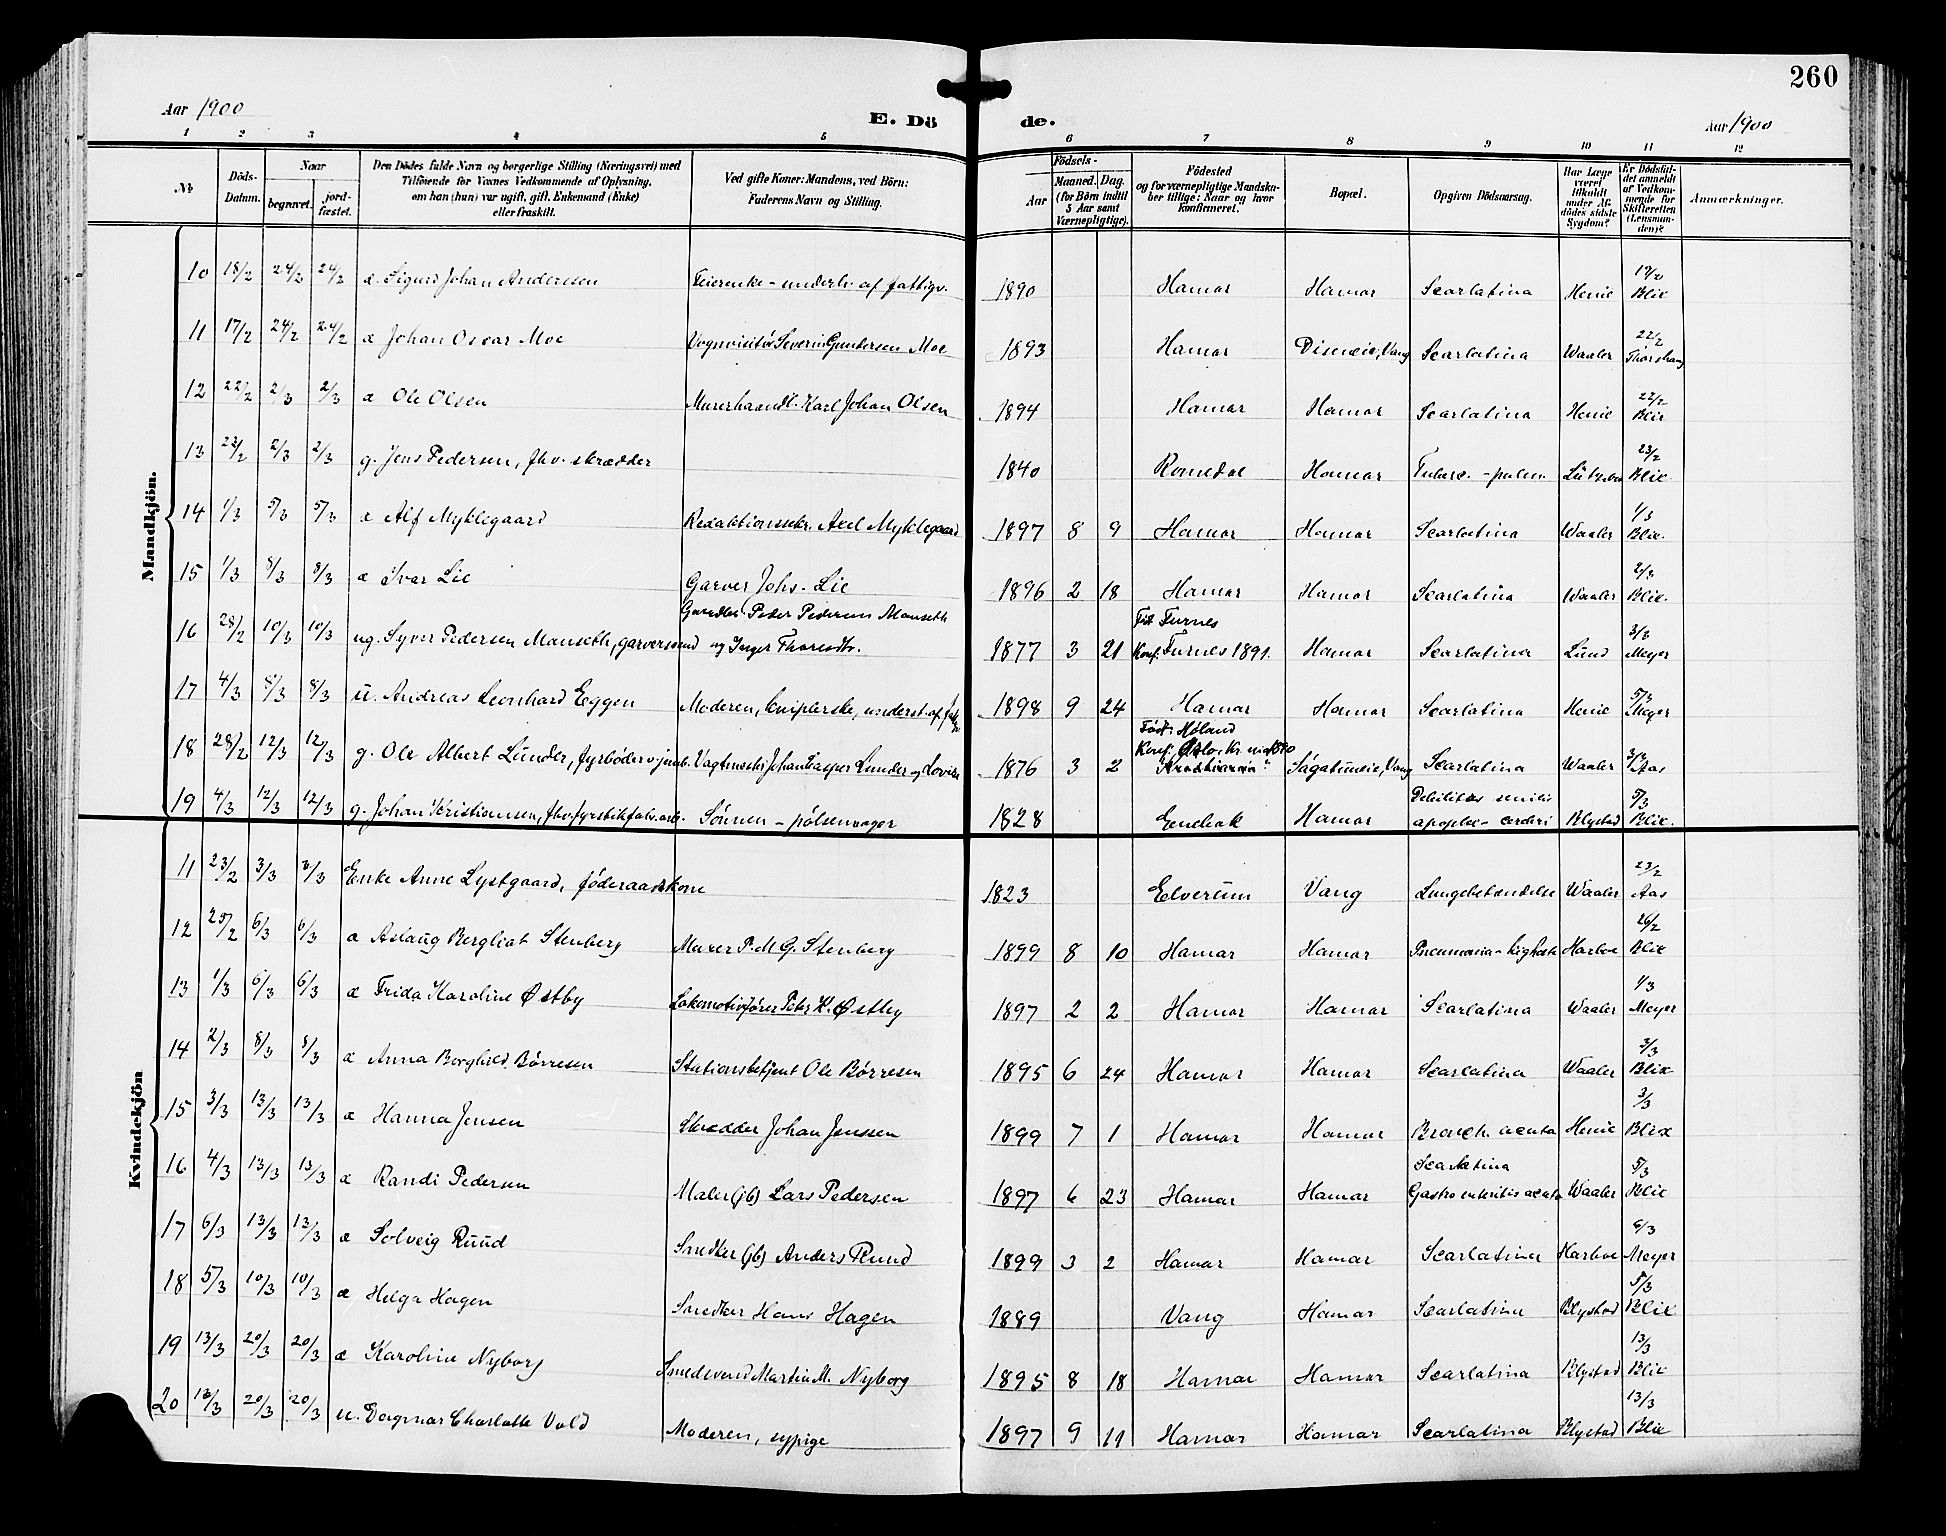 260
Aar 1900
E. Dö de.
Aar 1900
1 2 3 4 5 6 7 8 9 10 11 12
No
Döds-Datum.
Naar
begravet.
jord-fæstet.
Den Dödes fulde Navn og borgerlige Stilling (Næringsvei) med
Tilföiende for Voxnes Vedkommende af Oplysning,
om han (hun) var ugift, gift, Enkemand (Enke)
eller fraskilt.
Ved gifte Koner: Mandens, ved Börn:
Faderens Navn og Stilling.
Födsels-
Aar
Maaned. Dag.
(for Börn indtil
5 Aar samt
Værnepligtige).
Födested
og for værnepligtige Mandskaber tillige: Naar og hvor
konfirmeret.
Bopæl.
Opgiven Dödsaarsag.
Har Læge
været
tilkaldt
under Afdödes sidste
Sygdom?
Er Dödsfaldet anmeldt
af Vedkommende for
Skifteretten
(Lensmanden)?
Anmærkninger.
Mandkjön.
10 18/2 24/2 24/2 æ. Sigurd Johan Andersen Feierenke - underh. af fattigv. 1890 Hamar Hamar Scarlatina Henie 19/2 Blix
11 17/2 24/2 24/2 æ Johan Oscar Moe Vognvisitør Severin Gundersen Moe 1893 Hamar Disencie, Vang Scarlatina Waaler 22/2 Thorshaug
12 22/2 2/3 2/3 æ Ole Olsen Murerhaandl. Karl Johan Olsen 1894 Hamar Hamar Scarlatina Henie 22/2 Blix
13 23/2 2/3 2/3 g. Jens Pedersen, fhv. skrædder 1840 Romedal Hamar Tuberc. - pulm. 23/2 Blix
14 1/3 5/3 5/3 æ Alf Myklegaard Redaktionssekr. Axel Myklegaard 1897 8 9 Hamar Hamar Scarlatina Waaler 1/3 Blix.
15 1/3 8/3 8/3 æ Ivar Lie Garver Johs. Lie 1896 2 18 Hamar Hamar Scarlatina Waaler 2/3 Blix.
16 28/2 10/3 10/3 ug. Syver Pedersen Manseth, garversvend Gaardbr. Peder Pedersen Manseth og Inger Thoresdtr. 1877 3 21 Fød Furnes Konf. Furnes 1891. Hamar Scarlatina Lund 3/3 Meyer
17 4/3 8/3 8/3 u. Andreas Leonhard Eggen Moderen, kniplerske, underst. af 1898 9 24 Hamar Hamar Scarlatina Henie 5/3 Meyer
18 28/2 12/3 12/3 g. Ole Albert Lunder, fyrbøder v. jernb. Vagtmester Johan Casper Lunder og Lovise 1876 3 2 Født: Høland Konf. Oslo, Kr. Kristiania Sagatunvie, Vang Scarlatina Waaler 3/3 Aas
19 4/3 12/3 12/3 g. Johan Kristiansen, fhv. fyrstikfabr. arb. Sønnen - pølsemager 1828 Enebak Hamar Debilitas senilis apoplex - cerebri Blystad 5/3 Blix.
Kvindekjön
11 23/2 3/3 3/3 Enke Anne Lystgaard, föderaadskone 1823 Elverum Vang Lungebetændelse Waaler 23/2 Aas
12 25/2 6/3 6/3 æ Aslaug Bergliot Stenberg Murer P. M. G. Stenberg 1899 8 10 Hamar Hamar Pneumonia - kighoste Harboe 26/2 Blix
13 1/3 6/3 6/3 æ Frida Karoline Østby Lokomotivfører Peter K. Østby 1897 2 2 Hamar Hamar Scarlatina Waaler 1/3 Meyer
14 2/3 8/3 8/3 æ Anna Borghild Børresen Stationsbetjent Ole Børresen 1895 6 24 Hamar Hamar Scarlatina Waaler 3/3 Blix
15 3/3 13/3 13/3 æ Hanna Jensen Skrædder Johan Jenssen 1899 7 1 Hamar Hamar Bronch. acuta Henie 3/3 Blix
16 4/3 13/3 13/3 æ Randi Pedersen Maler (jb) Lars Pedersen 1897 6 23 Hamar Hamar Scarlatina Gastro enteritis acuta Waaler 5/3 Blix
17 6/3 13/3 13/3 æ Solveig Ruud Snedker (jb) Anders Ruud 1899 3 2 Hamar Hamar Scarlatina Harboe 6/3 Meyer
18 5/3 10/3 10/3 æ Helga Hagen Snedker Hans Hagen 1889 Vang Hamar Scarlatina Blystad 5/3 Blix
19 13/3 20/3 20/3 æ Karoline Nyborg Smedsvend Martin M. Nyborg 1895 8 18 Hamar Hamar Scarlatina Blystad 13/3 Blix
20 13/3 20/3 20/3 u. Dagmar Charlotte Vold Moderen, sypige 1897 9 11 Hamar Hamar Scarlatina Blystad 13/3 Blix